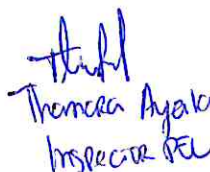 Thamara Ayala
Inspector PEL